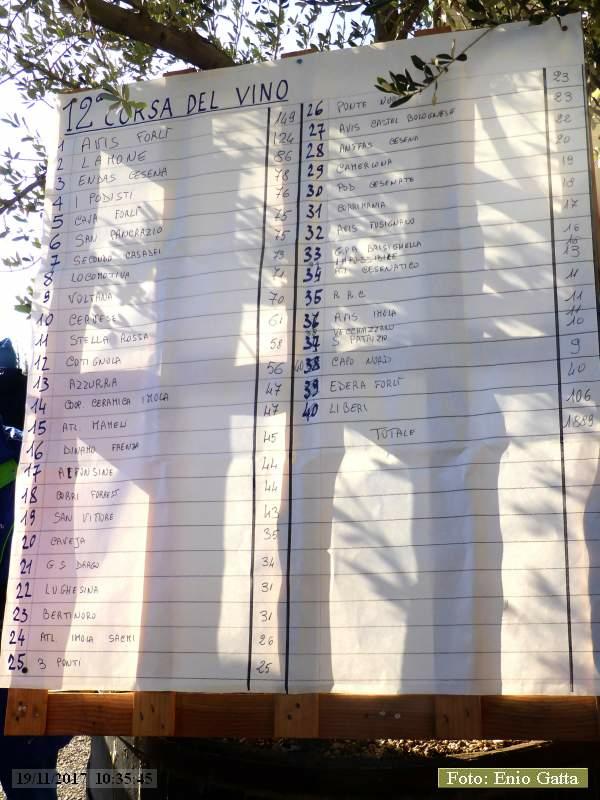 12ª CORSA DEL VINO
1 AVIS FORLÌ 149
2 LAMONE 124
3 ENDAS CESENA 86
4 I PODISTI 78
5 CAVA FORLÌ 76
6 SAN PANCRAZIO 75
7 SECONDO CASADEI 75
8 LOCOMOTIVA 73
9 VOLTANA 71
10 CERVESE 70
11 STELLA ROSSA 61
12 COTIGNOLA 58
13 AZZURRA 56
14 COOP. CERAMICA IMOLA 47
15 ATL. MAMELI 47
16 DINAMO FAENZA 45
17 ALFONSINE 44
18 CORRI FORREST 44
19 SAN VITTORE 43
20 CAVEJA 35
21 G S DRAGO 34
22 LUGHESINA 31
23 BERTINORO 31
24 ATL IMOLA SACMI 26
25. 3 PONTI 25
26 PONTE 23
27 AVIS CASTEL BOLOGNESE 23
28 ANFFAS CESENA 22
29 CAMERLONA 20
30 POD CESENATE 19
31 CORRIMANIA 18
32 AVIS FUSIGNANO 17
33 G.P.A BRISIGHELLA 16
IMPOSSIBILE 16
34 ATL CESENATICO 13
35 R R C 11
36 AVIS IMOLA 11
VECCHIAZZANO 11
37 S PATRIZIO 10
38 CAPO NORD 9
39 EDERA FORLÌ 40
40 LIBERI 106
TOTALE 1889
19/11/2017 10:35:45
Foto: Enio Gatta